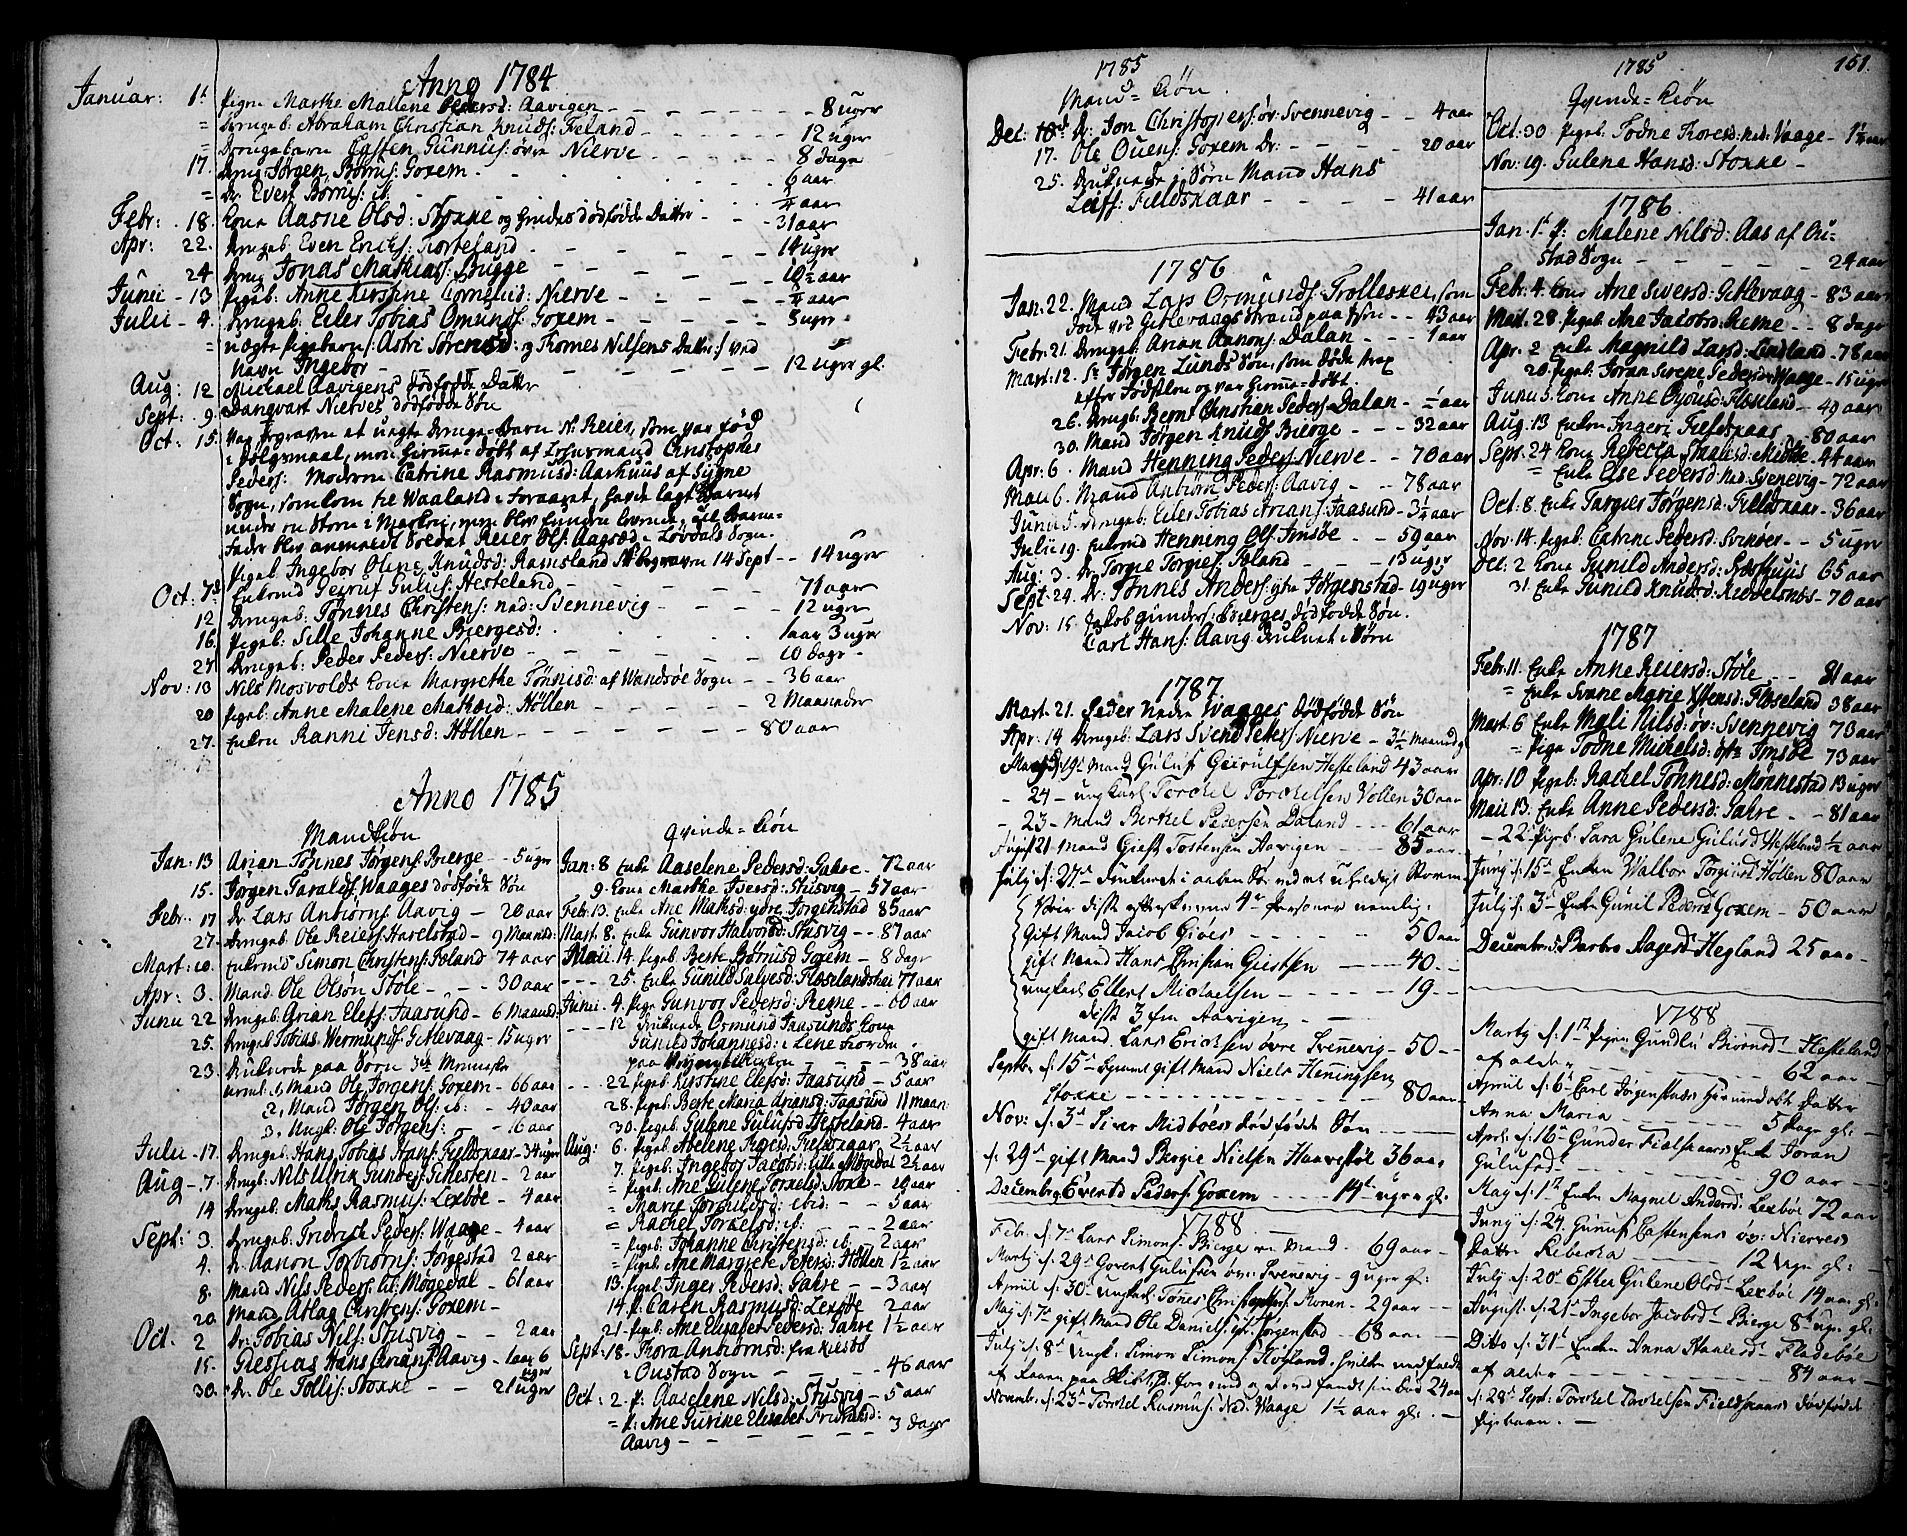 Anno 1784
Januar: 1. Pigen Marthe Mallene Aavigen - 8 uger
= Drengeb: Abraham Christian Knuds: Feland - 12 uger
= Drengebarn Gunnus: øvre Nierve - 8 dage
17. Dreng Jørgen Børrus: Goxem - 6 aar
= Dr: Evert Børrus: ib. - ¾ aar
Febr: 18. Kone Aasne Olsd: Stoxke og hendes dødfødde Datter - 31 aar
Apr: 22. Drengeb: Even Erichs: Torteland - 14 uger
24. Dreng Jonas Mathiass: Bugge - 10½ aar
Junii - 13 Pigeb: Anne Kirstine Nierve - ¾ aar
Julii - 4. Drengeb: Eiler Tobias Omunds: Goxem - 3 uger
= uægte Pigebarn /: Astri Sørensd: og Thomes Nilsens Datter :/ ved
Navn Ingebor - 12 uger gl.
Aug: 12 Michael Aavigens dødfødde Datter
Sept: 9. Dangvart Nierves dødfødde Søn
Oct: 15. Var begraven et uægte Drenge-Barn N. Reier, som var fød
i Dølgsmaal, men hiemme-døbt af Christopher
Peders: Moderen Catrine Rasmusd: Aarhuus af Sygne
Sogn, som kom til Waaland i Foraaret, havde lagt Barnet
under en Steen i Marken, men blev funden levende, til Barne-
fader blev anmeldt Soldat Reier Ols: Aagsæd i Løvdals Sogn.
Pigeb: Ingebor Oline Knudsd: Ramsland NB begraven 14 Sept - 14 uger
Oct: 7 Enkemd Geiruf Gulufs: Hesteland - 71 aar
12 Drengeb: Tønnes Christens: ned: Svennevig - 12 uger
16. Pigeb: Sille Johanne Biergesd: 1 aar 3 uger
27 Drengeb: Peder Peders: Nierve - 10 dage
Nov: 13 Nils Mosvolds Kone Margrethe Tønnisd: af Wandsøe Sogn - 36 aar
20 Pigeb: Anne Malene Høllen - 2 Maaneder
27. Enken Ranni Jensd: Høllen - 80 aar
Anno 1785
Mandkiøn
Jan: 13 Arian Tønnes Jørgens: Bierge - 5 uger
15. Jørgen Taralds: Waages dødfødde Søn
Febr: 17 Dr: Lars Anbiørns: Aavig - 20 aar
27. Drengeb: Ole Reiers: Havelstad - 9 Maaneder
Mart: 10. Enkemd Simon Christens: Føland 74 aar
Apr: 3. Mand Ole Olsøn Støle - 30 aar
Junii 22 Drengeb: Arian Elefs: Faasund - 6 Maaned
25. Drengeb Tobias Wermunds: Gitlevaag - 15 uger
23. Druknede paa Søen 3de Mennesker
neml: 1, Mand Ole Jørgens: Goxem - 66 aar
2, Mand Jørgen Ols: ib: - 40 aar
3, Ungk: Ole Jørgens: - 16 aar
Julii - 17. Drengeb: Hans Tobias Hans: Fieldskaar - 34 uger
Aug - 7. Drengb: Nils Ulrik - 2 aar
14 Drengeb: Maths Rasmus: Lexbøe - 4 aar
Sept: 3. Drengeb: Fridrich Peders: Waage - 4 aar
4. Dr: Aanon Torbiørns: Jørgestad 2 aar
8. Mand Nils Peders: lit: Møgedal - 61 aar
20. Mand Atlag Christens: Goxem -
Oct. 2 Dr: Tobias Nils: Stusvig - 2 aar
15. Hans Christians: Aavig - 1 aar 6 uger
30. Dr: Ole Tollis: Stoxke - 21 uger
Qvinde-Kiøn
Jan: 8 Enke Aaselene Pedersd: Jahre - 72 aar
9. Kone Marthe Iversd: Stusvig - 57 aar
Febr. 13. Enke Ane Mathsd: ydre Jørgenstad 85 aar
Mart. 8. Enke Gunvor Halvorsd: Stusvig - 87 aar
Maii 14. Pigeb Berte Børnisd Goxem - 8 dage
25. Enke Gunild Salvesd: Floselandshei 77 aar
Junii - 4. Pige Gunvor Pedersd: Reme - 60 aar
12 Druknede Osmund Faasunds Kone
Gunild Johannesd: i Lene Fiorden
paa - 38 aar
22 Pigeb: Kirstine Elefsd: Faasund - 5 aar
28. Pigeb: Berte Maria Ariansd: Faasund 11 maan
30. Pigeb: Gulene Gulufsd Hesteland - 4 aar
Aug: 6. Pigeb Abelene Fieldskaar - 2½ aar
7. Pigeb: Ingebor Jacobsd: Lille Møgedal 2½ aar
= Pigeb: Ane Gulene Torkelsd: Stoxe - 10 aar
= Marie Torkelsd: ibid: - 5 aar
= Rachel Torkelsd: ib: - 2 aar
= Pigeb: Johanne Christensd: ib. - 2 aar
= Pigeb: Ane Margrete Petersd: Høllen 1½ aar
13. Pigeb Inger Pedersd: Jahre - 3 aar
14 P: Caren Rasmusd: Lexbøe - 2 aar
21. Pigeb: Ane Elisabet Pedersd: Jahre 1½ aar
Sept: 18 - Thora Anbiørnsd: fra
i Oustad Sogn - 46 aar
Oct: 2. P: Aaselene Nilsd: Stusvig - 5 aar
= P: Ane Gurine Elisabet Fridrichsd:
Aavig - 3 dage
1785
Mand-Kiøn
Dec: Dr: Jon Christophers: øv: Svennevig - 4 aar
17. Ole Ouens: Goxem Dr: - 20 aar
25. Druknede i Søen Mand Hans
Leifs: Fieldskaar - 41 aar
1786
Jan: 22. Mand Lars Ormunds: Trolleskei, som
døde ved Gitlevaags Strand paa Søen - 43 aar
Febr: 21. Drengeb: Arian Aanons: Dalan - 1 aar
Mart: 12. Sr Jørgen Lunds Søn, som døde strax
efter Fødselen og var hieme-døbt.
26. Drengb: Bernt Christian Peders: Dalan - ½ aar
30. Mand Jørgen Knuds: Bierge - 32 aar
Apr: 6. Mand Henning Peders: Nierve - 70 aar
Maii 6. Mand Anbiørn Peders: Aavig - 78 aar
Junii 5. Drengeb: Eiler Tobias Arians: Faasund - 3¼ aar
Julii 19. Enkemd Henning Ols: Imsøe - 59 aar
Aug: 3. Dr: Torgie Torgies: Føland - 15 uger
Sept: 29. Dr: Tønnes Anders: ytre Jørgenstad - 19 uger
Nov: 15. Jakob Gunders: Bierges dødfødde Søn.
Carl Hans: Aavig druknet i Søen
1787
Mart. 21. Peder nedre Waages dødfødde Søn
Apr: 14 Drengeb: Lars Svend Peters: Nierve - 3½ Maaned gl
19de Mand Guluf Geirulfsen Hesteland 43 aar
- 24 - ungkarl Torchel Torchelsen Vollen 30 aar
- 23 - Mand Berthel Pedersen Daland - 61 aar
August 21 Mand Giest Tostensen Aavigen - 85 aar
Julij d: 27de Druknet i aaben Søe ved et uheldigt Storm
Veir disse efterskrevne 4re Personer nemlig:
gift Mand Jacob Gives - 50 aar
gift Mand Hans Christian Giestsen - 40 -
ungkarl Ellert Michaelsen - 19 -
disse 3 fra Aavigen -
gift Mand Lars Erichsen øvre Svennevig - 50 -
Septbr d: 15de gift Mand Niels Henningsen
Stoxke - 80 aar
Nov: d: 3de Siver Midbøes dødfødde Søn
d: 29de gift Mand Børgie Nielsen Haavestøl 36 aar
Decembr Evert Peders: Goxem - 14 uger gl:
1788
Febr: d: 7de Lars Simons: Bierge en Mand - 69 aar
Martj d: 29de Govert Gulufsen øvr: Svennevig - 9 uger gl:
Apriil d: 30 ungkarl Tønnes Christophersen Konen - 29 aar
Maj d: 7de gift Mand Ole Daniels: yt: Jørgenstad - 68 aar
Julij d: 8de Ungk: Simon Simons: Føgland, hvilken nedfaldt
af Raaen paa Skibet, forsvandt sin Død 24 aar
Novembr: d: 23de Torchel Rasmus: Ned: Waage 1½ aar gl:
1785
151.
Qvinde-Kiøn
Oct: 30 Pigeb: Todne Toresd: ned: Vaage - 1½ aar
Nov: 19. Gulene Hansd: Stoxke -
1786
Jan: 1. P: Malene Nilsd: Aas af Ou-
stad Sogn - 24 aar
Febr: 4. Kone Ane Siversd: Gitlevaag - 83 aar
Maii. 28 Pigeb: Ane Jacobsd: Reme - 8 dage
Apr: 2 Enke Magnild Larsd: Lindland - 78 aar
20. Pigeb: Joran Svene Pedersd: Waage - 15 uger
Junii 5. Kone Anne Floseland - 49 aar
Aug: 13 Enken Ingeri Fieldskaar - 80 aar
Sept: 24 Kone Rebecca 44 aar
= Enke Else Pedersd: Ned: Svenevig - 72 aar
Oct: 8. Enke Targier Jørgensd: Fieldskaar - 36 aar
Nov: 14. Pigeb: Catrine Pedersd: Svinøer - 5 uger
Dec: 2 Kone Gunild Andersd: 65 aar
31. Enke Gunild Knudsd: - 70 aar
1787
Febr: 11. Enke Anne Reiersd: Støle - 81 aar
= Enke Svane Marie Floseland 38 aar
Mart. 6 Enke Mali Nilsd: øv: Svennevig 73 aar
= Pige Todne Michelsd: Imsøe 73 aar
Apr: 10 Pigeb: Rachel Tønnesd: Mønnestad 13 uger
Maii 13. Enke Anne Pedersd: Jahre - 81 aar
- 22. Pigeb: Sara Gulene Gulufsd Hesteland ½ aar
Junij d: 15de Enken Walbor Torgiersd Høllen 80 aar
Julij d: 3de Enke Gunil Pedersd: Goxem - 50 aar
Decembr Barbro Aagesd: Hegland 25 aar
1788
Martj d: 1ste Pigen Gundlu Biørnsd: Hesteland
af alder - 62 aar
Apriil d: 6te Carl Jørgenstads hiemmedøbte Datter
Anna Maria - 5 dage gl:
April: d: 16de Gunder Fieldskaars Enke Joran
Gulufsd: - 90 aar
Maj d: 1ste Enken Magnel Andersd: Lexbøe 72 aar
Junij d: 24. Gunuf Eastensens øv: Nierves
Datter Rebecka - 12 uger gl:
Julij d: 20de Esther Gulene Olsd: Lexbøe 14 aar gl:
August. d: 21de Ingebor Jacobsd: Bierge 8te uger gl:
Ditto d: 31te Enken Anna Haaversd: Fladebøe
af alder - 84 aar
d: 28de Sept: Torchel Torchelsen Fieldskaars dødfødde
Pigebarn. -